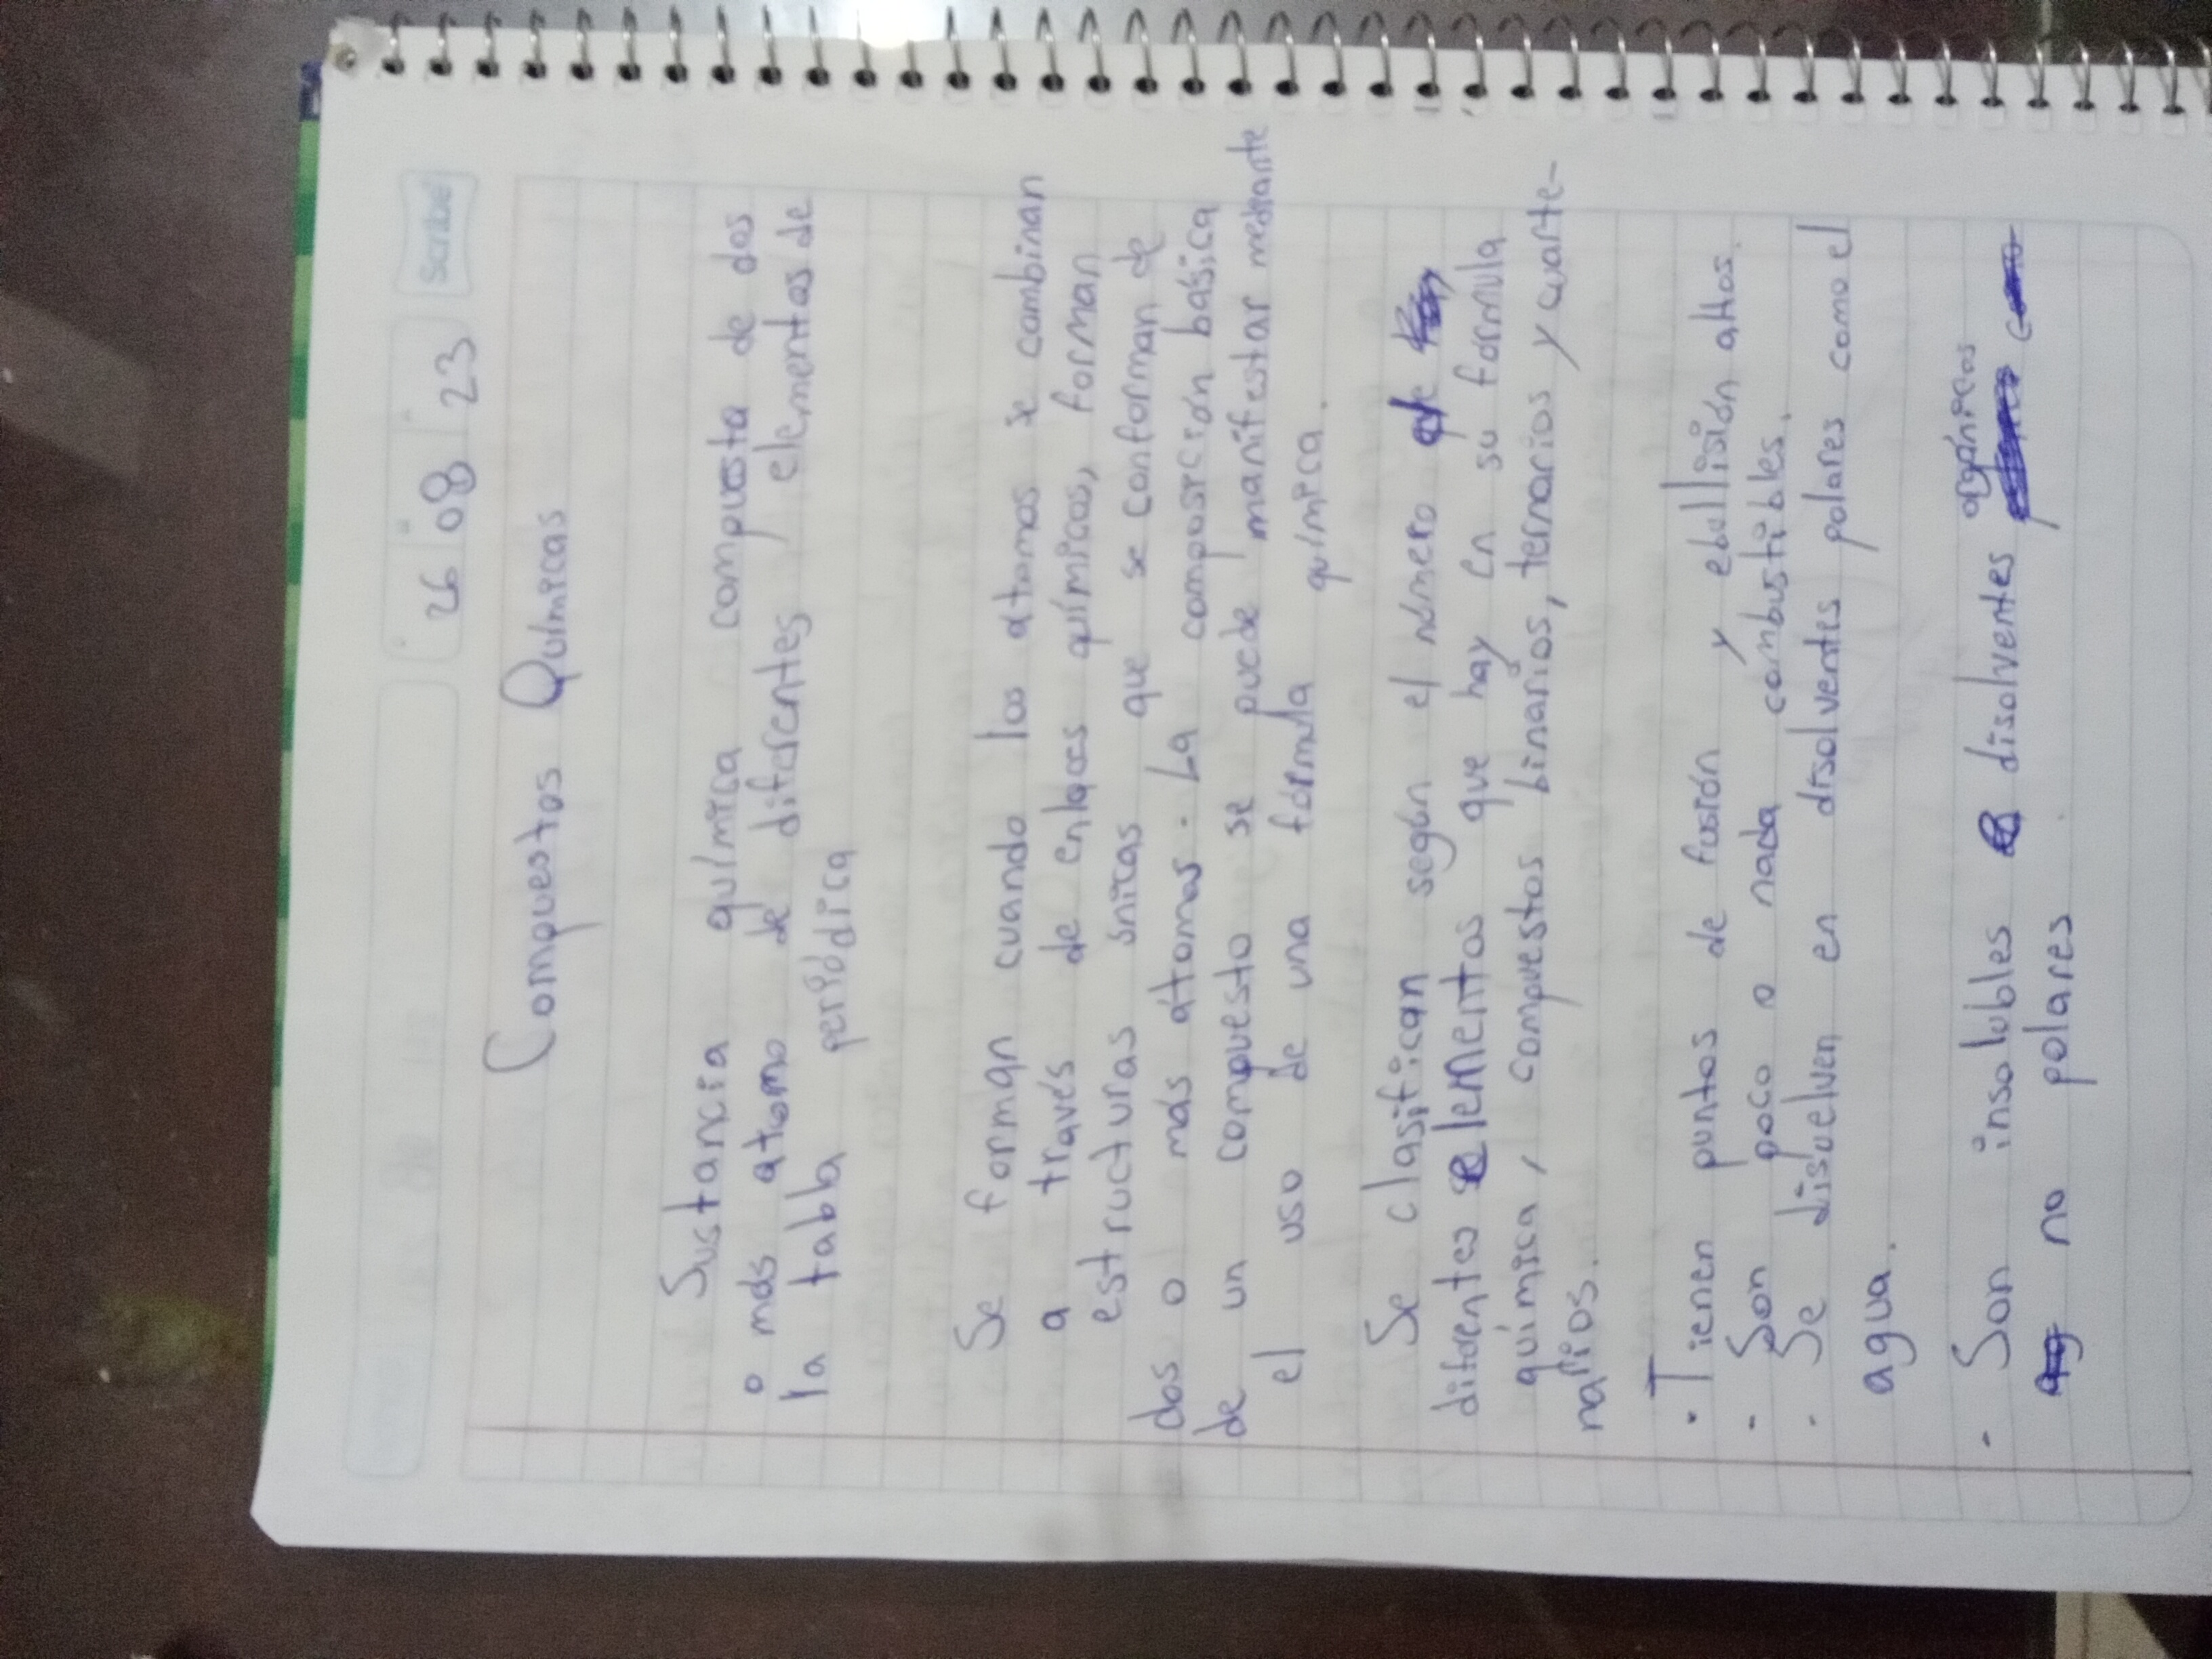 Scribe
26 08 23
Compuestos Químicas
Sustancia química compuesta de dos
o más atomo de diferentes elementos de
la tabla periódica
Se forman cuando los atomos se combinan
a través de enlaces químicos, forman
estructuras únicas que se conforman de
dos o más átomos. La composición básica
de un compuesto se puede manifestar mediante
el uso de una fórmula química.
Se clasifican según el número de
diferentes elementos que hay en su formula
química, compuestos binarios, ternarios y cuarte-
narios.
· Tienen puntos de fusión y ebullisión altos.
- Son poco o nada combustibles.
· Se disuelven en disolventes polares como el
agua.
- Son insolubles disolventes orgánicos
no polares